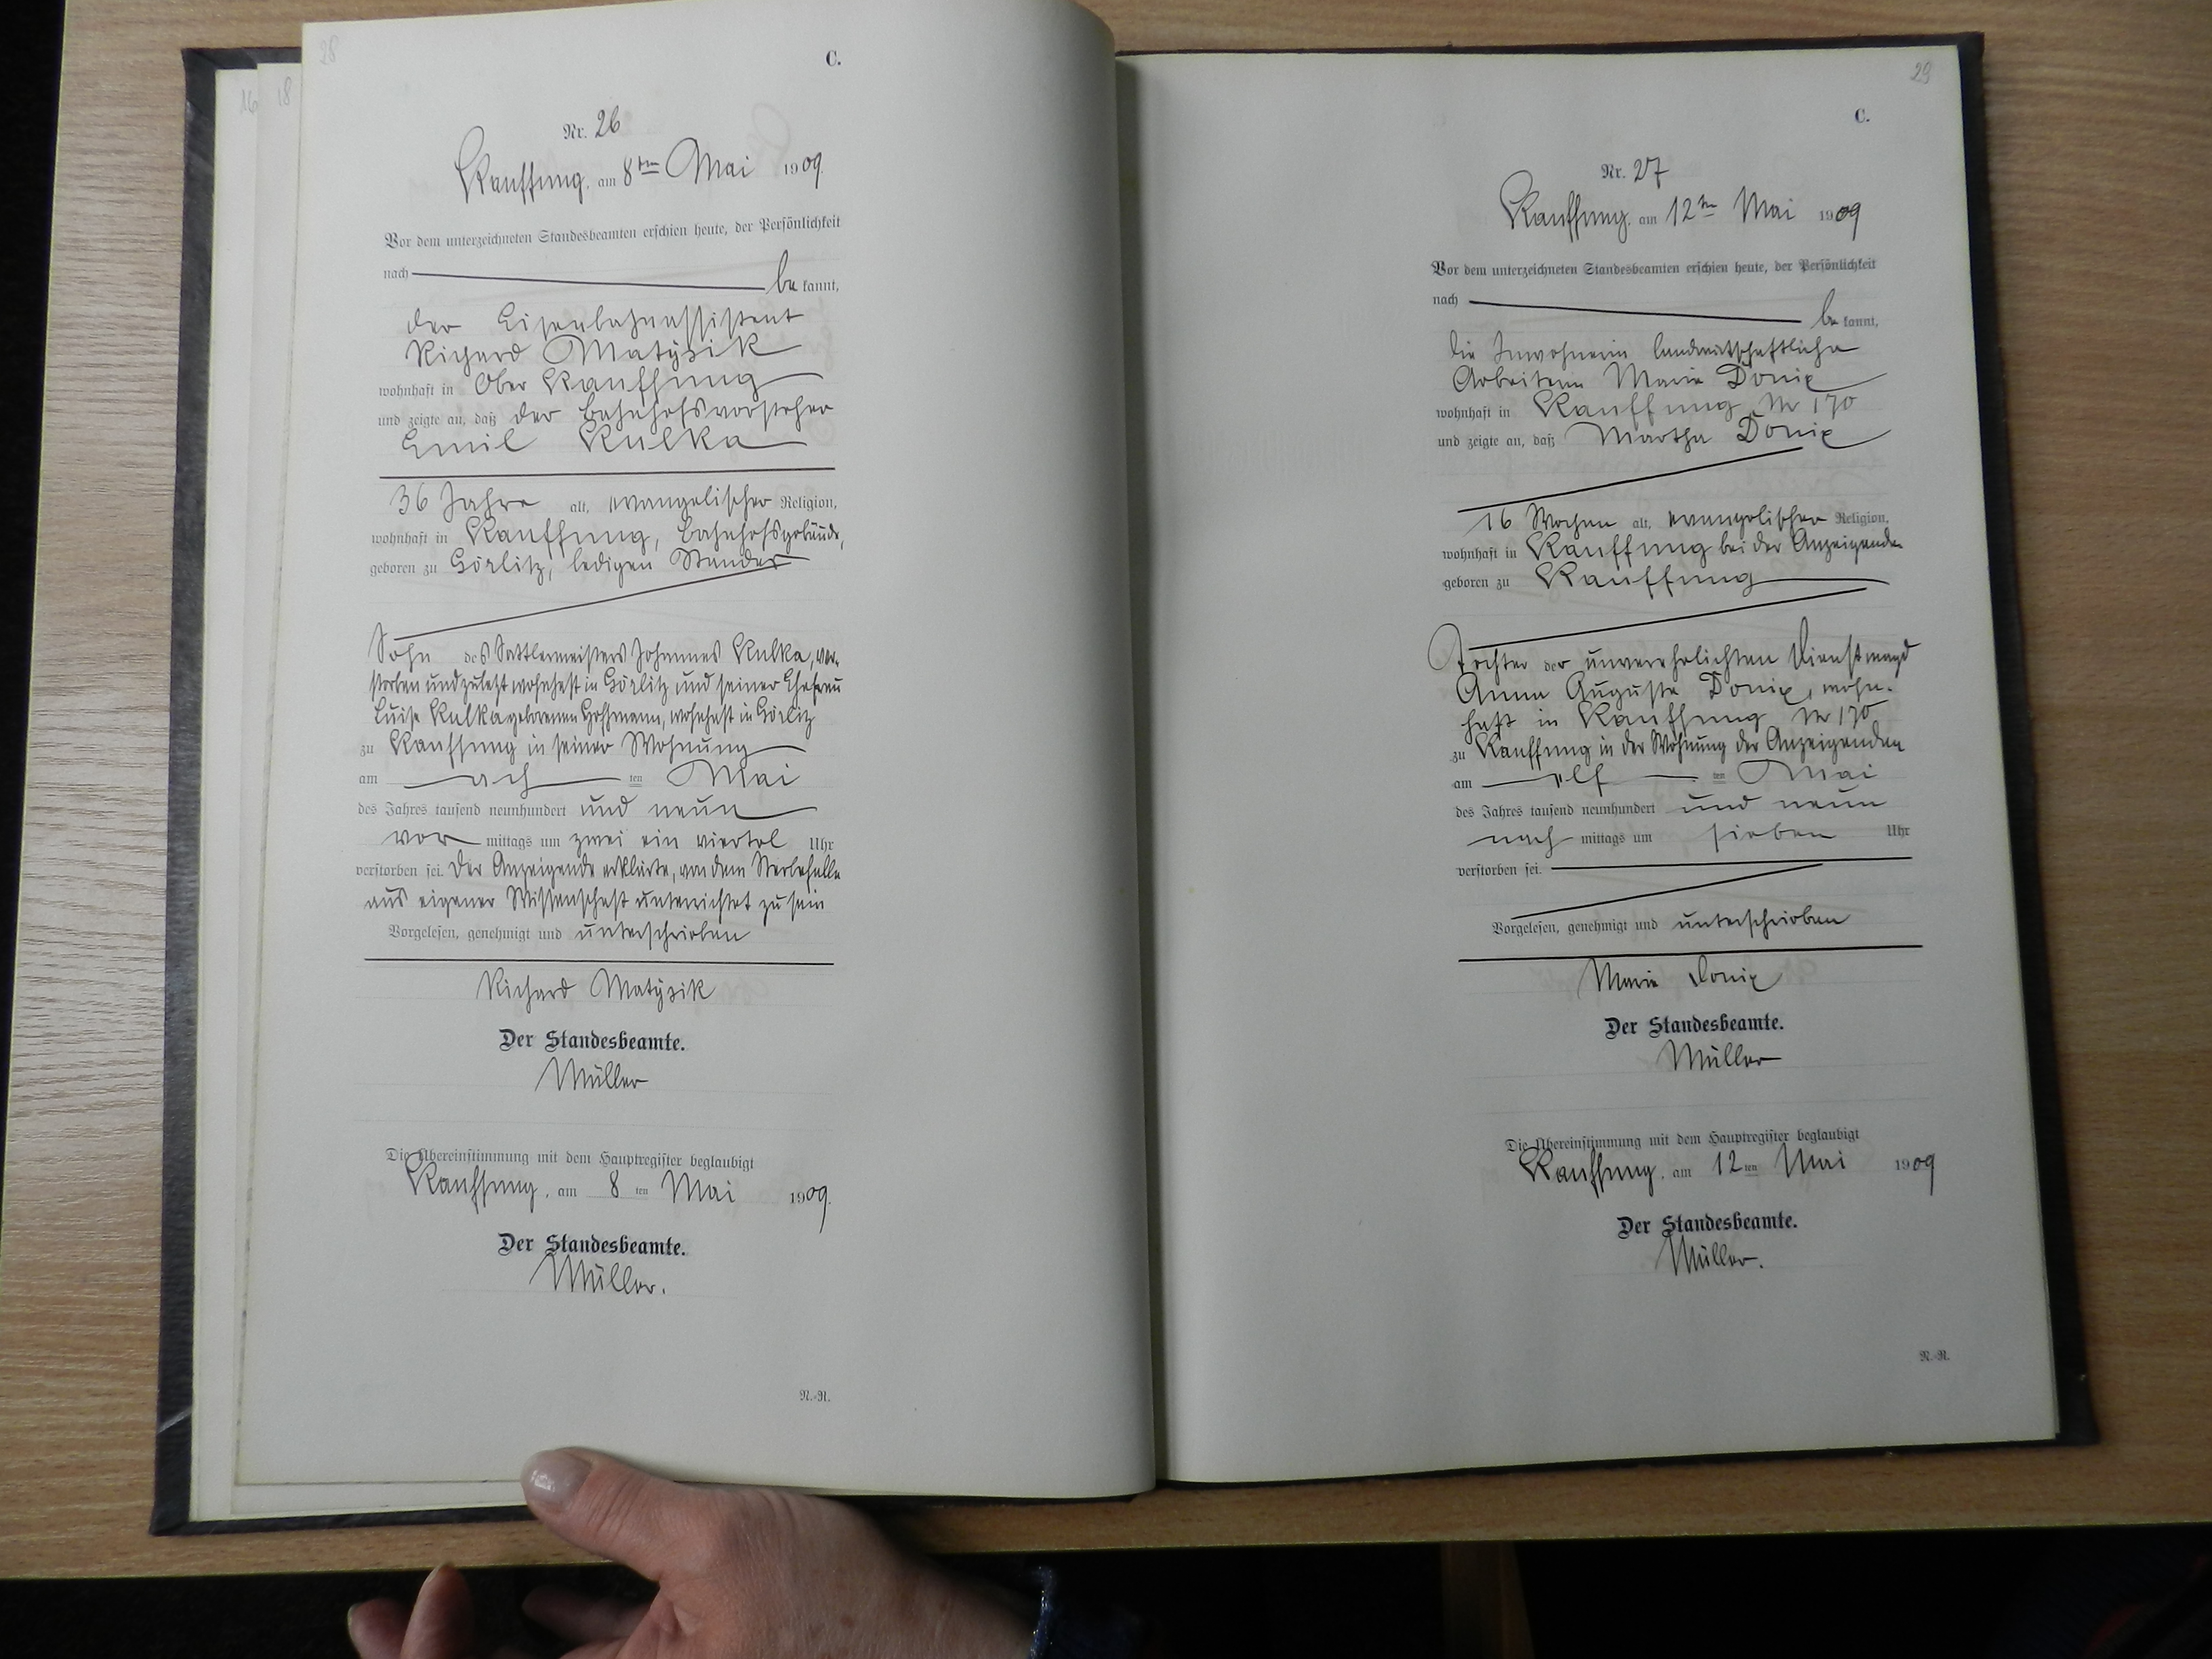 16
18
28
C.
Nr. 26
Kauffung, am 8ten Mai 1909.
Vor dem unterzeichneten Standesbeamten erschien heute, der Persönlichkeit
nach be kannt,
der Eisenbahnassistent
Richard Matysik
wohnhaft in Ober Kauffung
und zeigte an, daß der Bahnhofsvorsteher
Emil Kulka
36 Jahre alt, evangelischer Religion,
wohnhaft in Kauffung, Bahnhofsgebäude,
geboren zu Görlitz, ledigen Standes
Sohn des Sattlermeisters Johannes Kulka, ver-
storben und zuletzt wohnhaft in Görlitz und seiner Ehefrau
Luise Kulka geborenen Hoffmann, wohnhaft in Görlitz
zu Kauffung in seiner Wohnung
am acht ten Mai
des Jahres tausend neunhundert und neun
vor mittags um zwei ein viertel Uhr
verstorben sei. Der Anzeigende erklärte, von dem Sterbefalle
aus eigener Wissenschaft unterrichtet zu sein
Vorgelesen, genehmigt und unterschrieben
Richard Matysik
Der Standesbeamte.
Müller
Die Übereinstimmung mit dem Hauptregister beglaubigt
Kauffung, am 8 ten Mai 1909.
Der Standesbeamte.
Müller.
N.-R.
29
C.
Nr. 27
Kauffung, am 12ten Mai 1909
Vor dem unterzeichneten Standesbeamten erschien heute, der Persönlichkeit
nach be kannt,
die Inwohnerin landwirtschaftliche
Arbeiterin Marie Donix
wohnhaft in Kauffung Nr 170
und zeigte an, daß Martha Donix
16 Wochen alt, evangelischer Religion,
wohnhaft in Kauffung bei der Anzeigenden
geboren zu Kauffung
Tochter der unverehelichten Dienstmagd
Anna Auguste Donix, wohn-
haft in Kauffung Nr 170
zu Kauffung in der Wohnung der Anzeigenden
am elf ten Mai
des Jahres tausend neunhundert und neun
nach mittags um sieben Uhr
verstorben sei.
Vorgelesen, genehmigt und unterschrieben
Marie Donix
Der Standesbeamte.
Müller
Die Übereinstimmung mit dem Hauptregister beglaubigt
Kauffung, am 12 ten Mai 1909
Der Standesbeamte.
Müller.
N.-R.